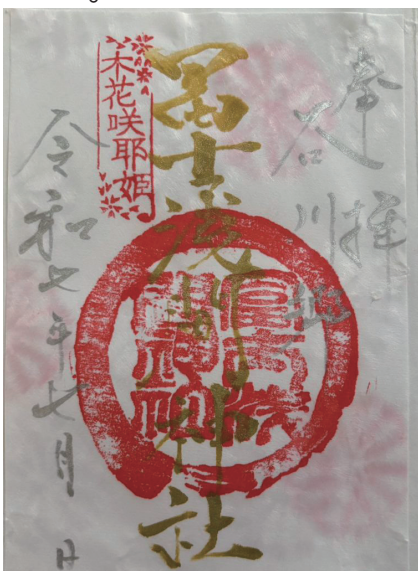 奉拝
冨士浅間神社
木花咲耶姫
令和七年七月 日